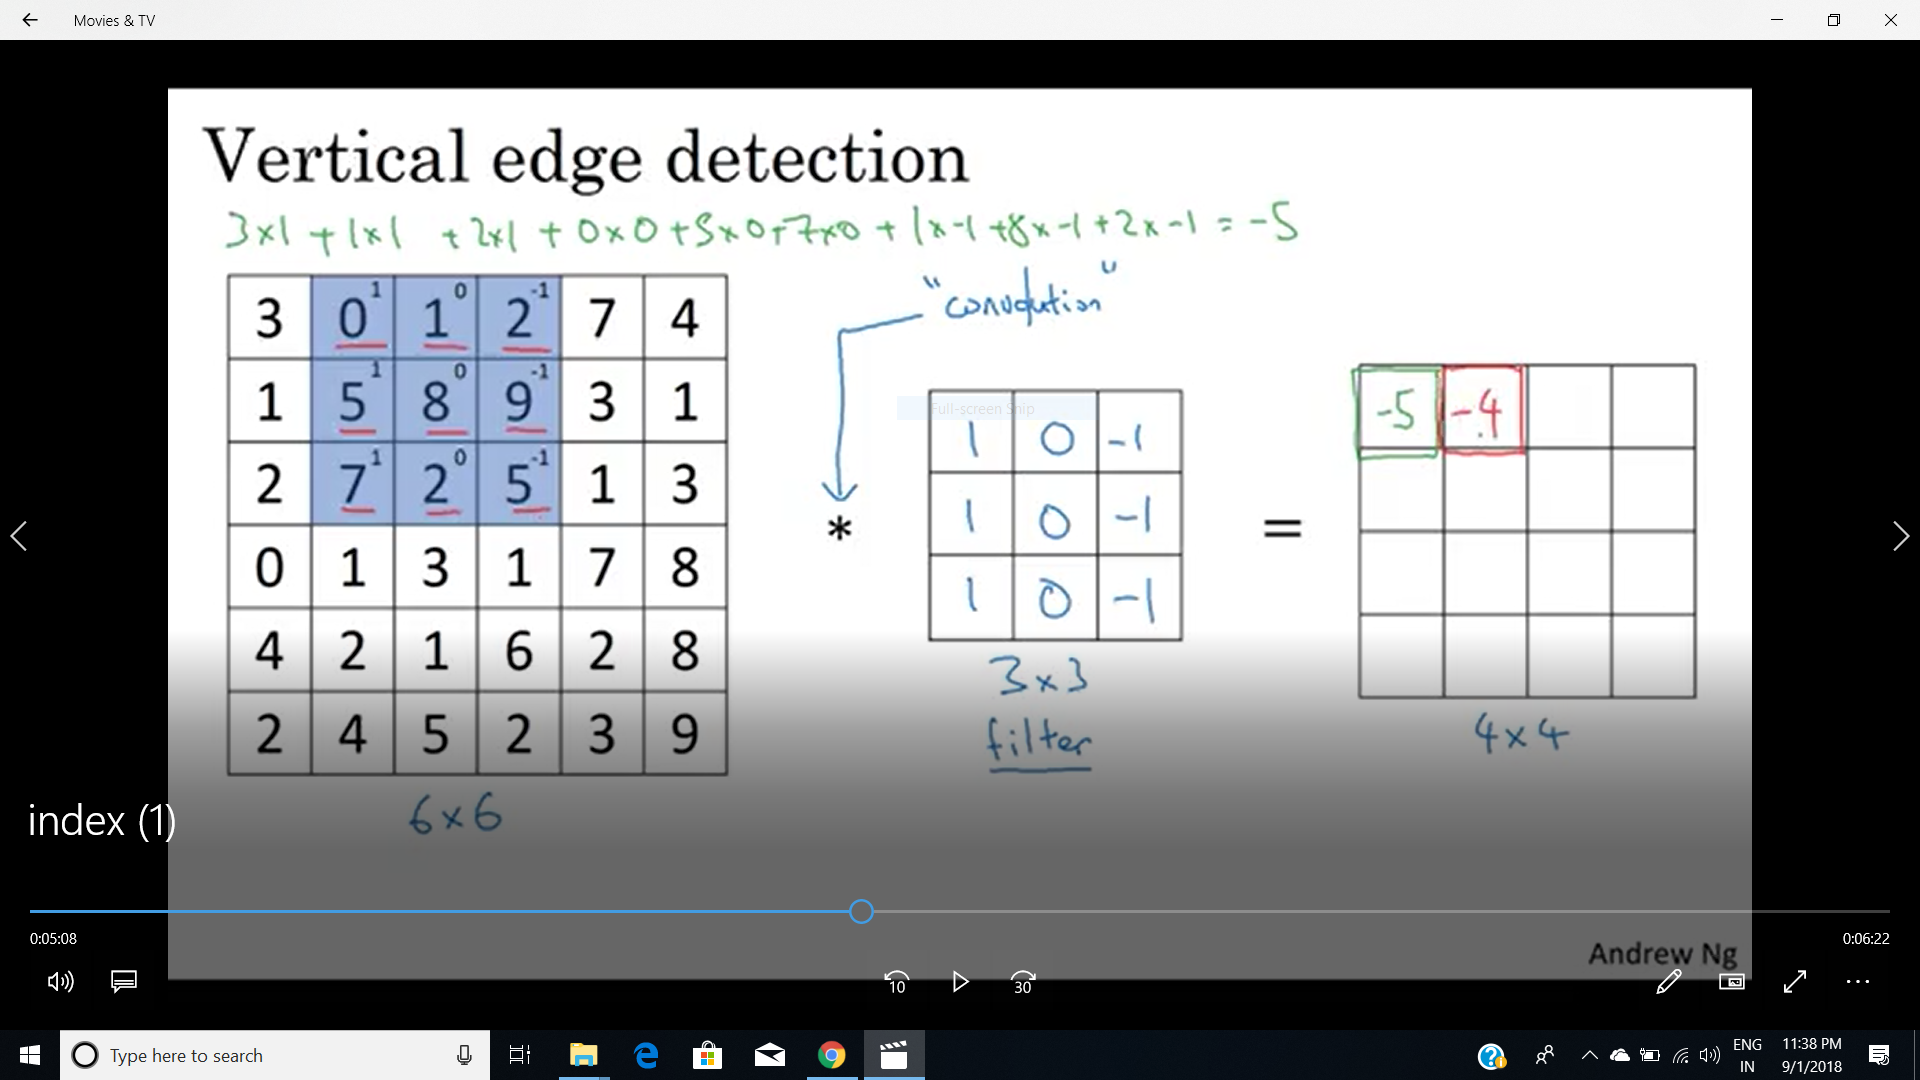 Movies & TV
Vertical edge detection
3x1 + 1x1 + 2x1 + 0x0 + 5x0 + 7x0 + 1x-1 + 8x-1 + 2x-1 = -5
"convolution"
3 0 1 1 0 2 -1 7 4
1 5 1 8 0 9 -1 3 1
2 7 1 2 0 5 -1 1 3
0 1 3 1 7 8
4 2 1 6 2 8
2 4 5 2 3 9
6x6
*
Full-screen Snip
1 0 -1
1 0 -1
1 0 -1
3x3
filter
=
-5 -4
4x4
index (1)
0:05:08 0:06:22
Andrew Ng
10 30
Type here to search
ENG 11:38 PM
IN 9/1/2018